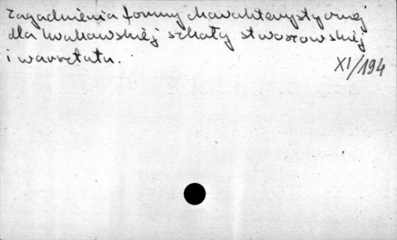 Zagadnienia formy charakterystycznej
dla krakowskiej szkoły stwoszowskiej
i warsztatu.
XI/194